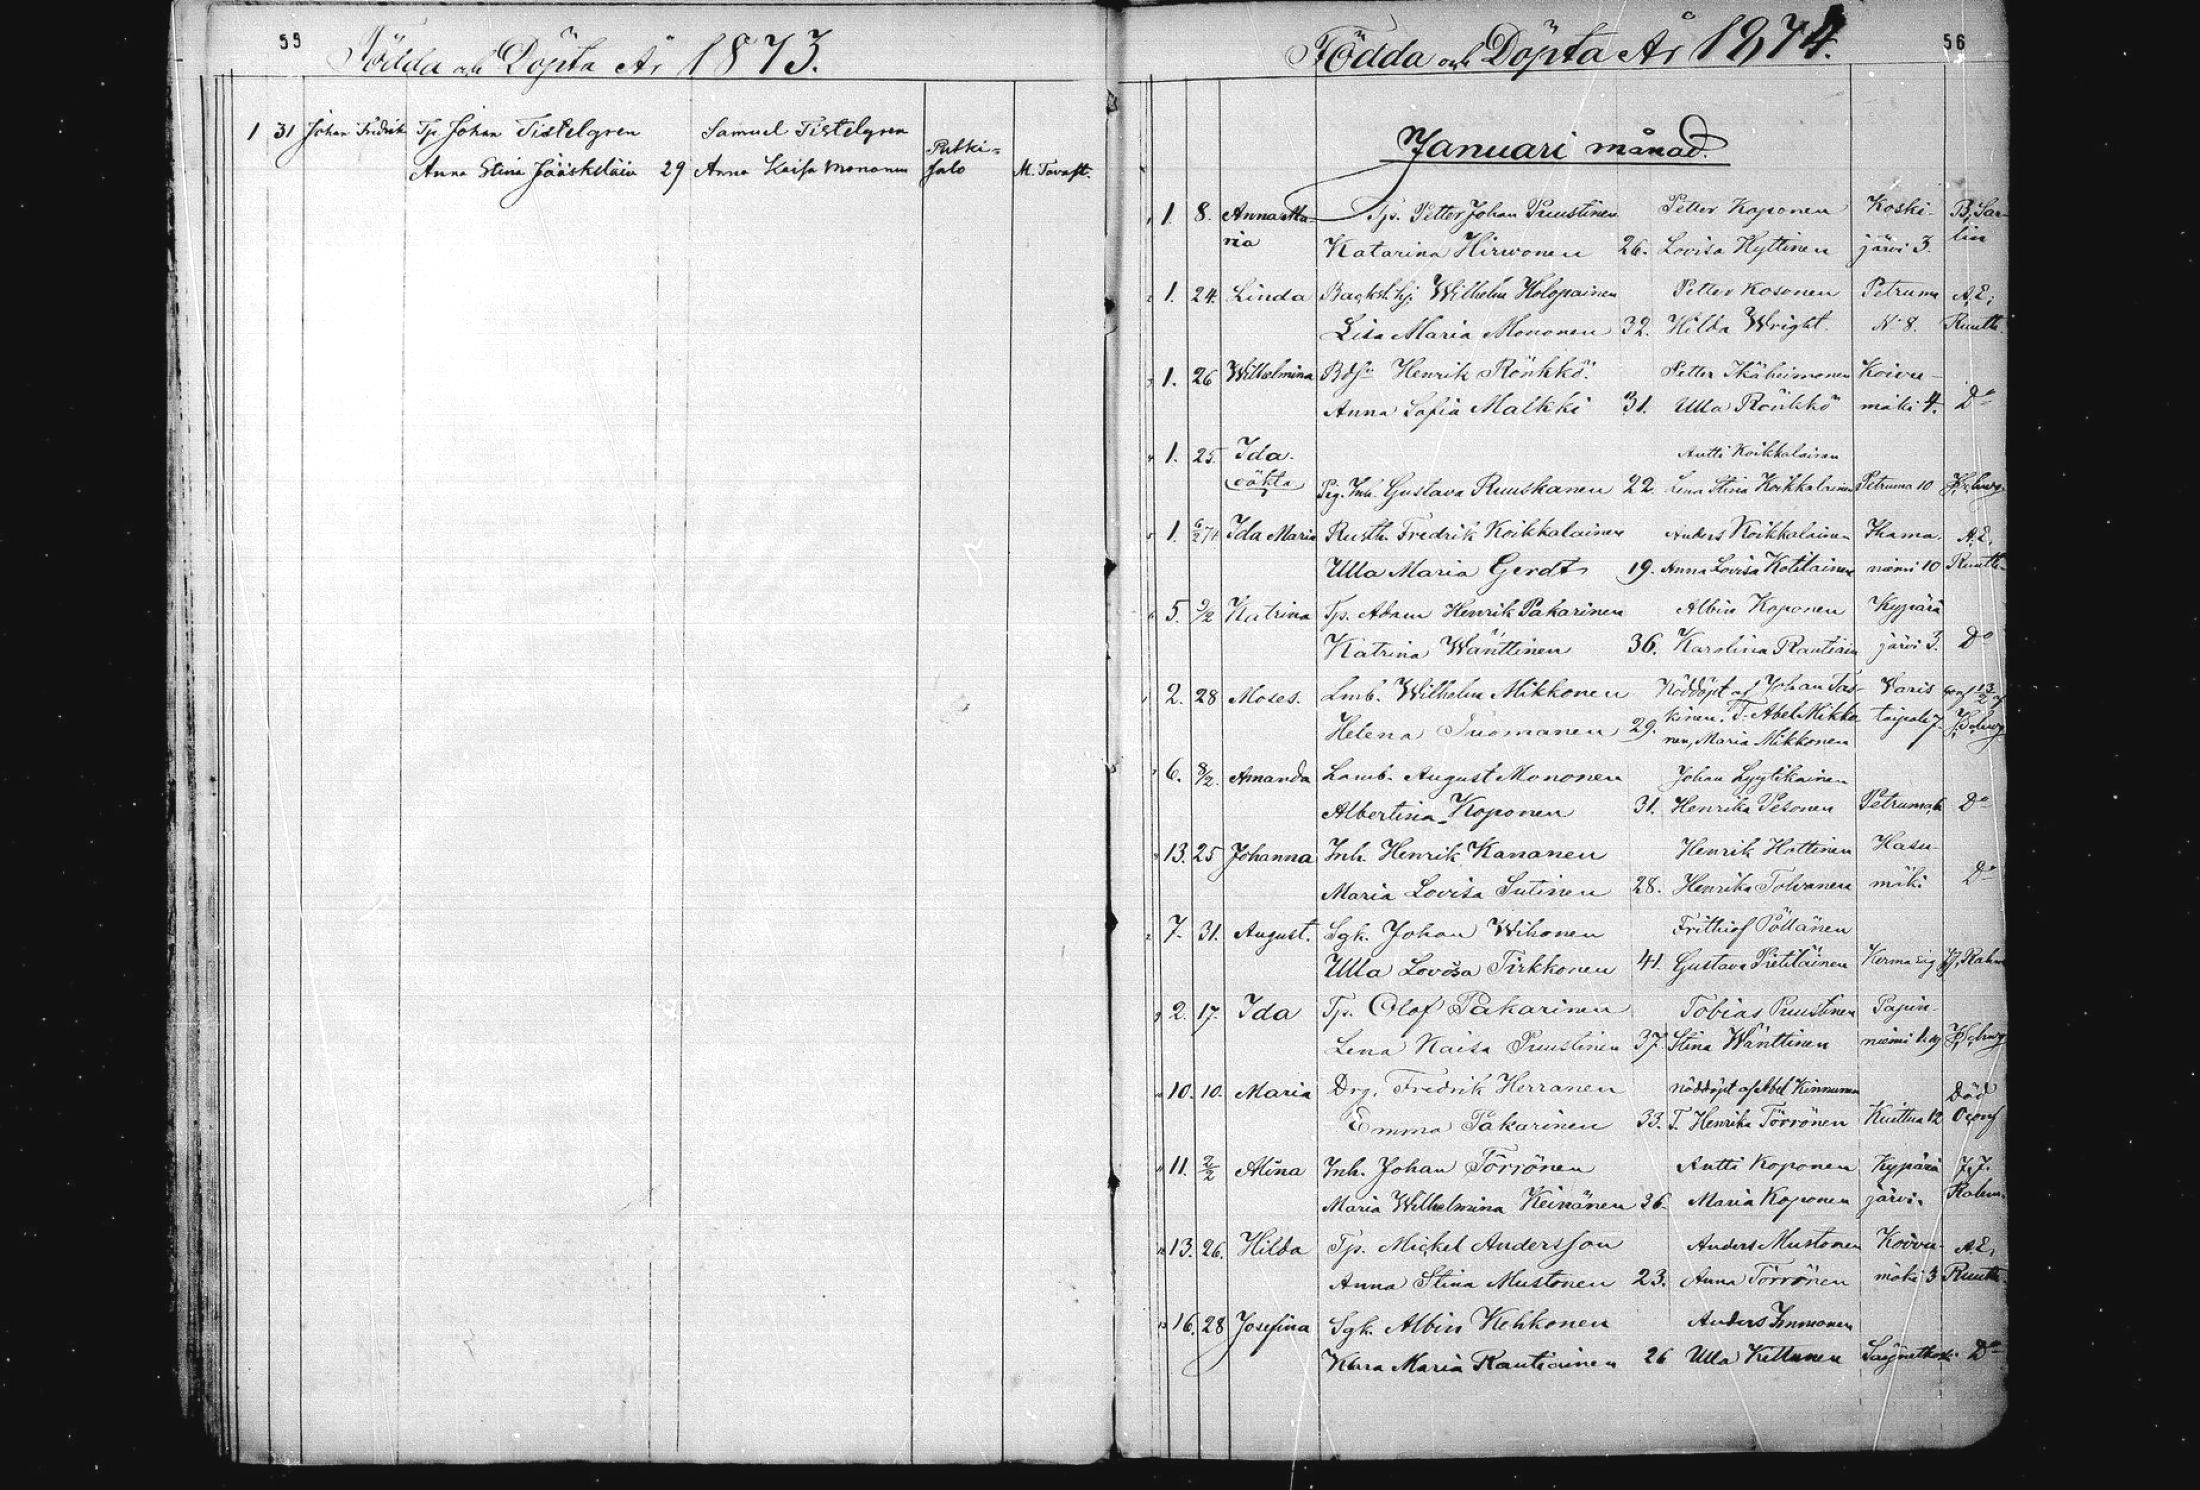 59
Födda och Döpta År 1873.
1 31 Johan Fredrik Tp. Johan Tistelgren Samuel Tistelgren
Anna Stina Jääskeläin 29 Anna Kaisa Mononen Putki=salo M. Tavast.
56
Födda och Döpta År 1874.
Januari månad.
1 1. 8. Anna Ma- Tp. Petter Johan Puustinen Petter Koponen Koski- B. Sar-
ria Katarina Hirvonen 26. Lovisa Hyttinen järvi 3. lin
2 1. 24. Linda Wilhelm Holopainen Petter Kosonen Petruma A. E.
Lisa Maria Mononen 32. Hilda Wright. N 8. Ruuth.
3 1. 26 Wilhelmina Henrik Rönkkö. Petter Ikäheimonen Koivu-
Anna Sofia Malkki 31. Ulla Rönkkö mäki 4. Do
4 1. 25. Ida. Antti Koikkalainen
oäkta Pig. Inh. Gustava Ruuskanen 22. Lena Stina Koikkalainen Petruma 10
5 1. 6/2 74. Ida Maria Rusth. Fredrik Koikkalainen Anders Koikkalainen Ihama- A. E.
Ulla Maria Gerdt 19. Anna Lovisa Kotilainen niemi 10 Ruuth.
6 5. 9/2 Katrina Tp. Adam Henrik Pakarinen Albin Koponen Kypärä
Katrina Wänttinen 36. Karolina Rautiain järvi 3. Do
2. 28 Moses. Lmb. Wilhelm Mikkonen Nöddöpt af Johan Tas- Varis
Helena Tuomanen 29. kinen. T. Abel Mikko taipale 7.
nen, Maria Mikkonen
6. 8/2. Amanda Lamb. August Mononen Johan Lyytikainen
Albertina Koponen 31. Henrika Pesonen Petruma 6 Do
13. 25 Johanna Inh. Henrik Kananen Henrik Hottinen Hasu-
Maria Lovisa Sutinen 28. Henrika Tolvanen mäki Do
7. 31. August. Sgk. Johan Wihonen Frithiof Pöllänen
Ulla Lovisa Tirkkonen 41. Gustava Pietiläinen Kerma
2. 17. Ida Tp. Olof Pakarinen Tobias Puustinen Papin-
Lena Kaisa Puustinen 37. Stina Wänttinen niemi
10. 10. Maria Drg. Fredrik Herranen Nöddöpt af Abel Kinnunen Död
Emma Pakarinen 33. T. Henrika Törrönen Kuittua 12
11 11. 2/2 Alina Inh. Johan Törrönen Antti Koponen Kypärä J. J.
Maria Wilhelmina Keinänen 36. Maria Koponen järvi. Rahm.
12 13. 26. Hilda Tp. Mickel Andersson Anders Mustonen Koivu- A. E.
Anna Stina Mustonen 23. Anna Törrönen mäki 3 Ruuth.
13 16. 28 Josefina Sgk. Albin Kehkonen Anders Immonen
Klara Maria Rautiainen 26 Ulla Kettunen Do